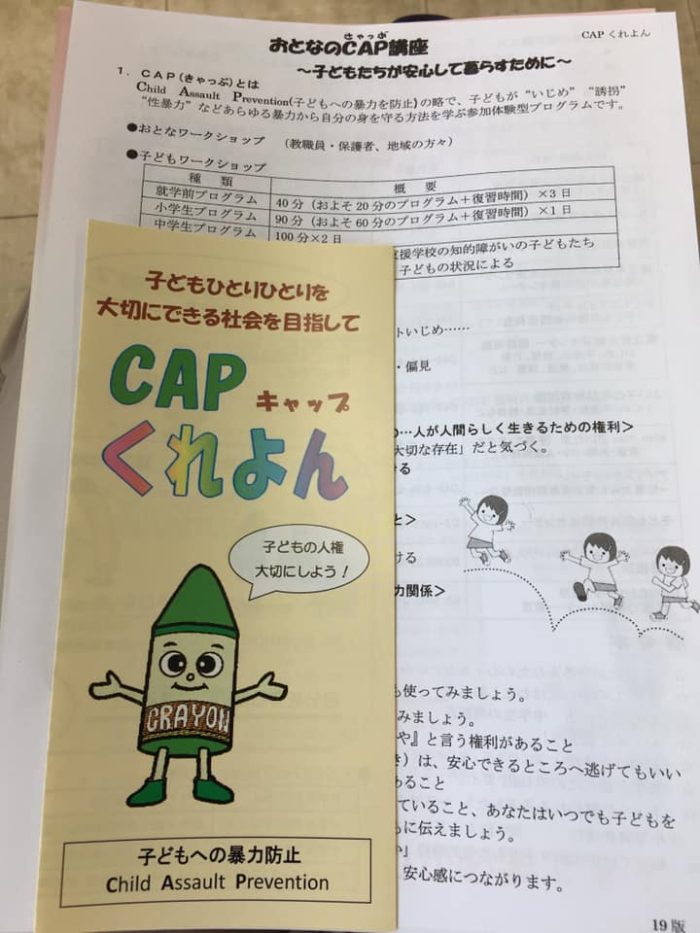 CAP くれよん
きゃっぷ
おとなのCAP講座
～子どもたちが安心して暮らすために～
1．CAP(きゃっぷ)とは
Child Assault Prevention(子どもへの暴力を防止)の略で、子どもが“いじめ”“誘拐”
“性暴力”などあらゆる暴力から自分の身を守る方法を学ぶ参加体験型プログラムです。
●おとなワークショップ （教職員・保護者、地域の方々）
●子どもワークショップ
種 類 概 要
就学前プログラム 40分（およそ20分のプログラム＋復習時間）×3日
小学生プログラム 90分（およそ60分のプログラム＋復習時間）×1日
中学生プログラム 100分×2日
支援学校の知的障がいの子どもたち
子どもの状況による
トいじめ……
・偏見
…人が人間らしく生きるための権利＞
大切な存在」だと気づく。
ける
と＞
ける
力関係＞
も使ってみましょう。
みましょう。
や』と言う権利があること
き）は、安心できるところへ逃げてもいい
あること
ていること、あなたはいつでも子どもを
に伝えましょう。
い」
、安心感につながります。
19版
子どもひとりひとりを
大切にできる社会を目指して
CAP キャップ
くれよん
子どもの人権
大切にしよう！
CRAYON
子どもへの暴力防止
Child Assault Prevention